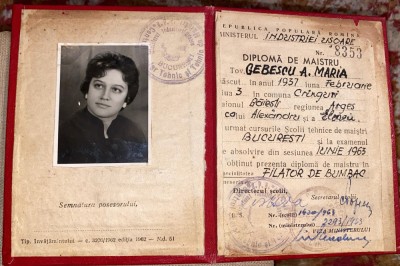 Semnătura posesorului,
Tip. Învățămîntului — c. 3370/1962 ediția 1962 — Md. 51
REPUBLICA POPULARĂ ROMÎNĂ
MINISTERUL INDUSTRIEI UȘOARE
Nr. 8353
DIPLOMĂ DE MAISTRU
Tov. GEBESCU A. MARIA
născut în anul 1937 luna Februarie
ziua 3 în comuna Crînguri
raionul Găești regiunea Argeș
Alexandru și
urmat cursurile Școlii tehnice de maiștri
BUCUREȘTI și la examenul
de absolvire din sesiunea IUNIE 1963
obținut prezenta diplomă de maistru în
specialitatea FILATOR DE BUMBAC
Directorul școlii, Secretarul
L. S.
VIZA MINISTERULUI